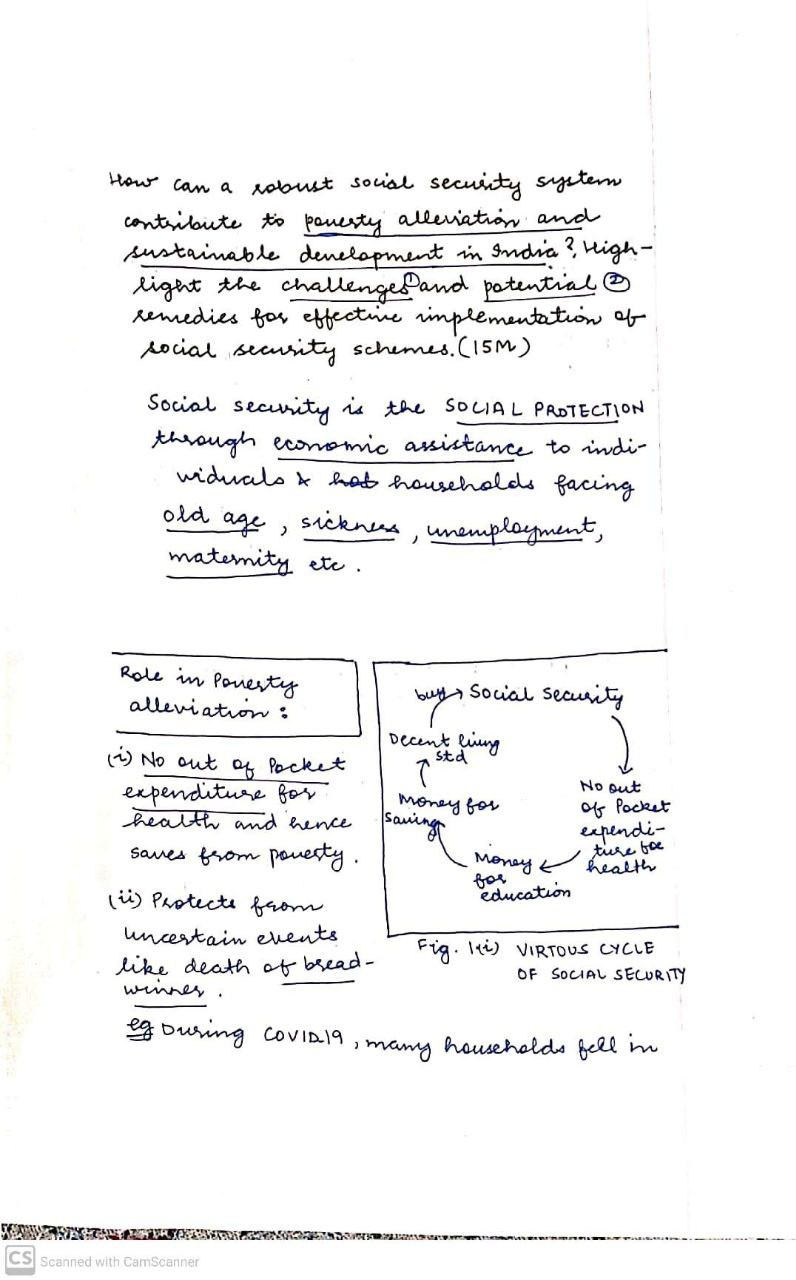 How can a robust social security system
contribute to poverty alleviation and
sustainable development in India?, High-
light the challenges ① and potential ②
remedies for effective implementation of
social security schemes. (15M)
Social security is the SOCIAL PROTECTION
through economic assistance to indi-
viduals & households facing
old age, sickness, unemployment,
maternity etc.
Role in Poverty
alleviation:
(i) No out of Pocket
expenditure for
health and hence
saves from poverty.
(ii) Protects from
uncertain events
like death of bread-
winner.
buy → Social Security
No out
of Pocket
expendi-
ture for
health
Money
for
education
Money for
Saving
Decent living
std
Fig. 1(i) VIRTOUS CYCLE
OF SOCIAL SECURITY
eg During COVID19, many households fell in
CS Scanned with CamScanner